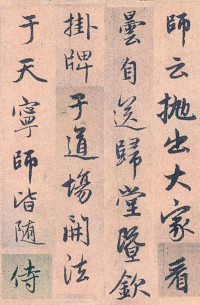 師云拋出大家看
曇自送歸堂暨欽
掛牌子道場開法
于天寧師皆隨侍